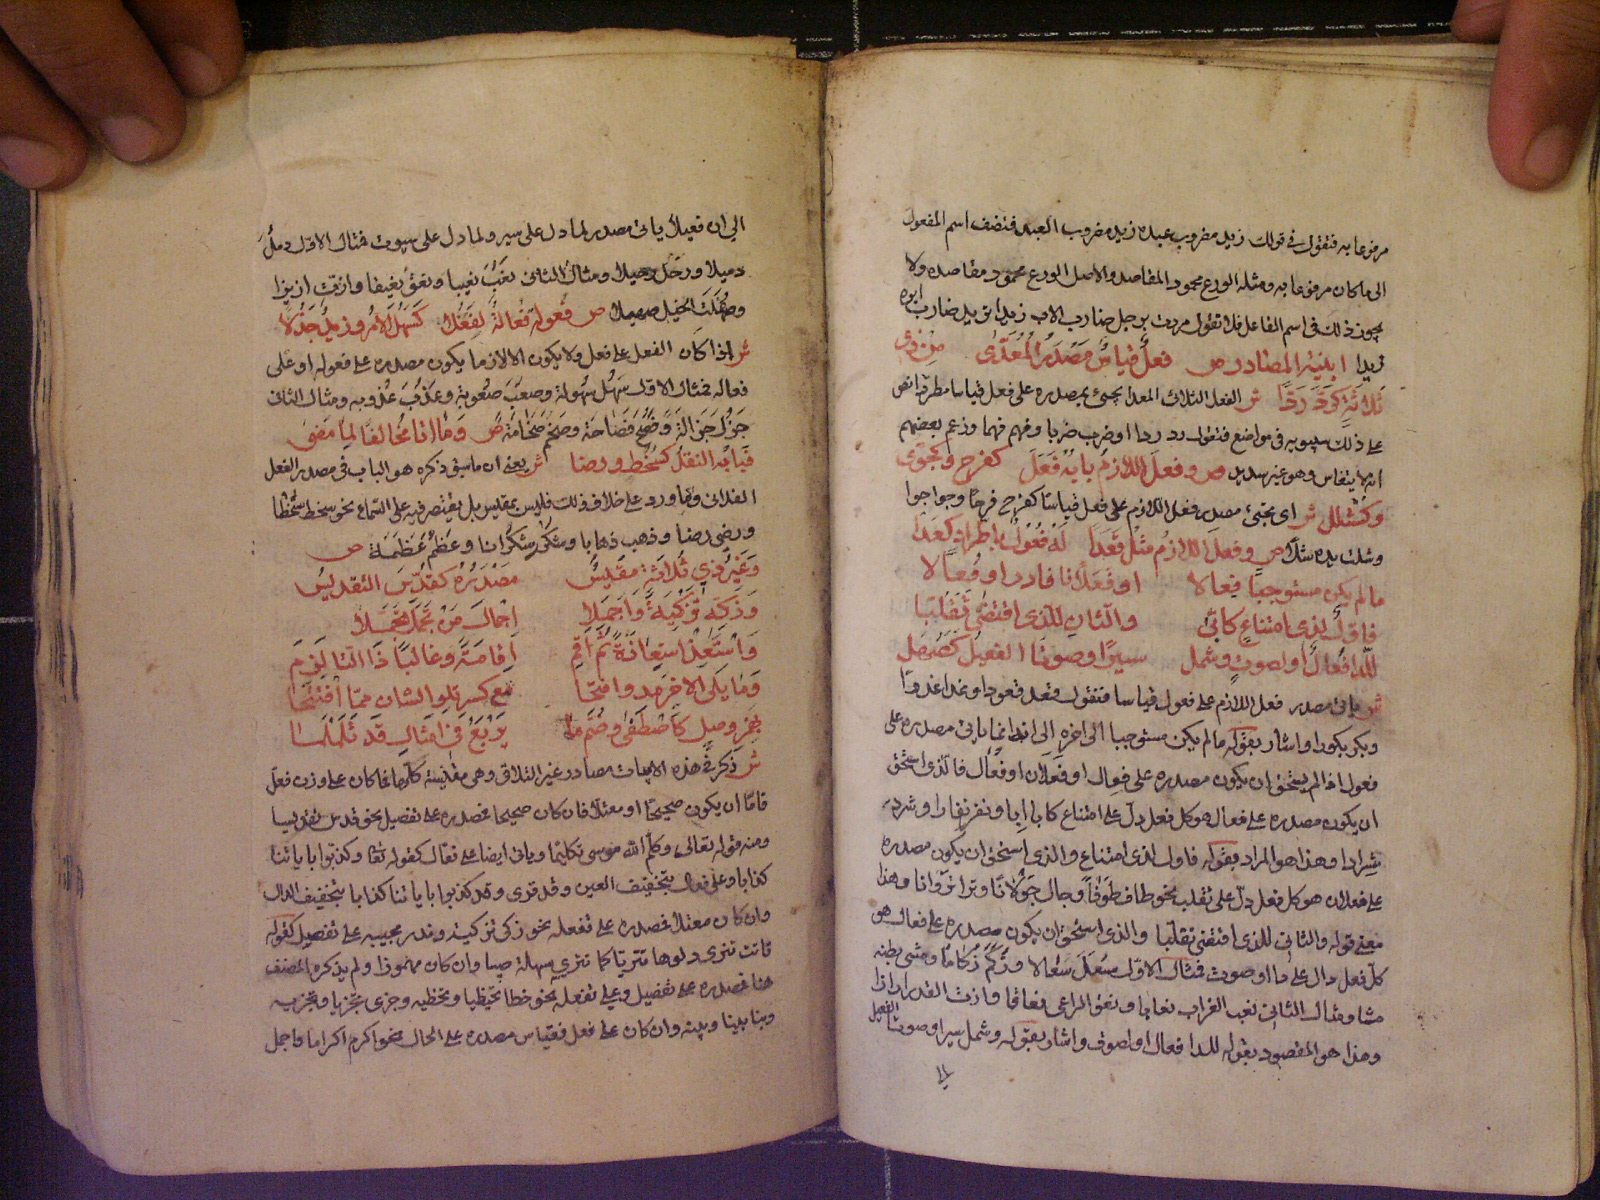 مرفوعا به فتقول في قولك زيد مضروب عبده زيد مضروب العبد فتضف اسم المفعول
الى ما كان مرفوعا به ومثله الورع محمود المقاصد والاصل الورع محمود مقاصده ولا
يجوز ذلك في اسم الفاعل فلا تقول مررت برجل ضارب الاب زيدا تريد ضارب ابوه
زيدا ابنية المصادر ص فعل قياس مصدر المعدى من ذى
ثلاثة كرد ردا ش الفعل الثلاثى المعدا يجئ مصدره على فعل قياسا مطردا نص
على ذلك سيبويه في مواضع فتقول رد ردا وضرب ضربا وفهم فهما وزعم بعضهم
انه لا ينقاس وهو غير سديد ص وفعل اللازم بابه فعل كفرح وكجوى
وكشلل ش اى يجئ مصدر فعل اللازم على فعل قياسا كفرح فرحا وجوا جوا
وشلت يده شللا ص وفعل اللازم مثل قعدا له فعول باطراد كغدا
ما لم يكن مستوجبا فعالا او فعلانا فادر او فعالا
فاول لذى امتناع كابى والثان للذى اقتضى تقلبا
للدا فعال او لصوت وشمل سيرا وصوتا الفعيل كصهل
ش ياتى مصدر فعل اللازم على فعول قياسا فتقول قعد قعودا وغدا غدوا
وبكر بكورا واشار بقوله ما لم يكن مستوجبا الى اخره الى انه انما ياتى مصدره على
فعول اذا لم يستحق ان يكون مصدره على فعال او فعلان او فعال فالذى استحق
ان يكون مصدره على فعال هو كل فعل دل على امتناع كابا اباء ونفر نفارا وشرد
شرادا وهذا هو المراد بقوله فاول لذى امتناع والذى استحق ان يكون مصدره
على فعلان هو كل فعل دل على تقلب نحو طاف طوفانا وجال جولانا ونزا نزوانا وهذا
معنى قوله والثان للذى اقتضى تقلبا والذى استحق ان يكون مصدره على فعال هو
كل فعل دال على دا او صوت فمثال الاول سعل سعالا وزكم زكاما ومشى بطنه
مشا ومثال الثانى نعب الغراب نعابا ونعق الراعى نعاقا وازت القدر ازازا
وهذا هو المقصود بقوله للدا فعال او لصوت واشار بقوله وشمل سيرا وصوتا الفعيل
الى ان فعيلا ياتى مصدر لما دل على سير ولما دل على صوت فمثال الاول ذمل
ذميلا ورحل رحيلا ومثال الثانى نعب نعيبا ونعق نعيقا وازت ازيزا
وصهلت الخيل صهيلا ص فعولة فعالة لفعلا كسهل الامر وزيد جزلا
ش اذا كان الفعل على فعل ولا يكون الا لازما يكون مصدره على فعولة او على
فعاله فمثال الاول سهل سهولة وصعب صعوبة وعذب عذوبه ومثال الثانى
جزل جزالة وفصح فصاحة وضخم ضخامة ص وما اتا مخالفا لما مضى
فبابه النقل كسخط ورضا ش يعنى ان ما سبق ذكره هو الباب في مصدر الفعل
الثلاثى وما ورد على خلاف ذلك فليس بمقيس بل يقتصر فيه على السماع نحو سخط سخطا
ورضى رضا وذهب ذهابا وشكر شكرانا وعظم عظمة ص
وغير ذي ثلاثة مقيس مصدره كقدس التقديس
وزكه تزكية واجملا اجمال من تجملا تجملا
واستعذ استعاذة ثم اقم اقامة وغالبا ذا التا لزم
وما يلى الاخر مد وافتحا مع كسر تلو الثان مما افتتحا
بهمز وصل كاصطفى وضم ما يربع في امثال قد تلملما
ش ذكر في هذه الابيات مصادر غير الثلاثى وهى مقيسة كلها فما كان على وزن فعل
فاما ان يكون صحيحا او معتلا فان كان صحيحا فمصدره على تفعيل نحو قدس تقديسا
ومنه قوله تعالى وكلم الله موسى تكليما وياتى ايضا على فعال كقوله تعا وكذبوا باياتنا
كذابا وعلى فعال بتخفيف العين وقد قرى وكذبوا باياتنا كذابا بتخفيف الذال
وان كان معتلا فمصدره على تفعلة نحو زكى تزكية وندر مجيئه على تفعيل كقوله
باتت تنزى دلوها تنزيا كما تنزى شهلة صبيا وان كان مهموزا ولم يذكره المصنف
هنا فمصدره على تفعيل وعلى تفعلة نحو خطا تخطيا وتخطيه وجزى تجزيا وتجزيه
ونبا نبيا وتنبئة وان كان على افعل فقياس مصدره على افعال نحو اكرم اكراما واجمل